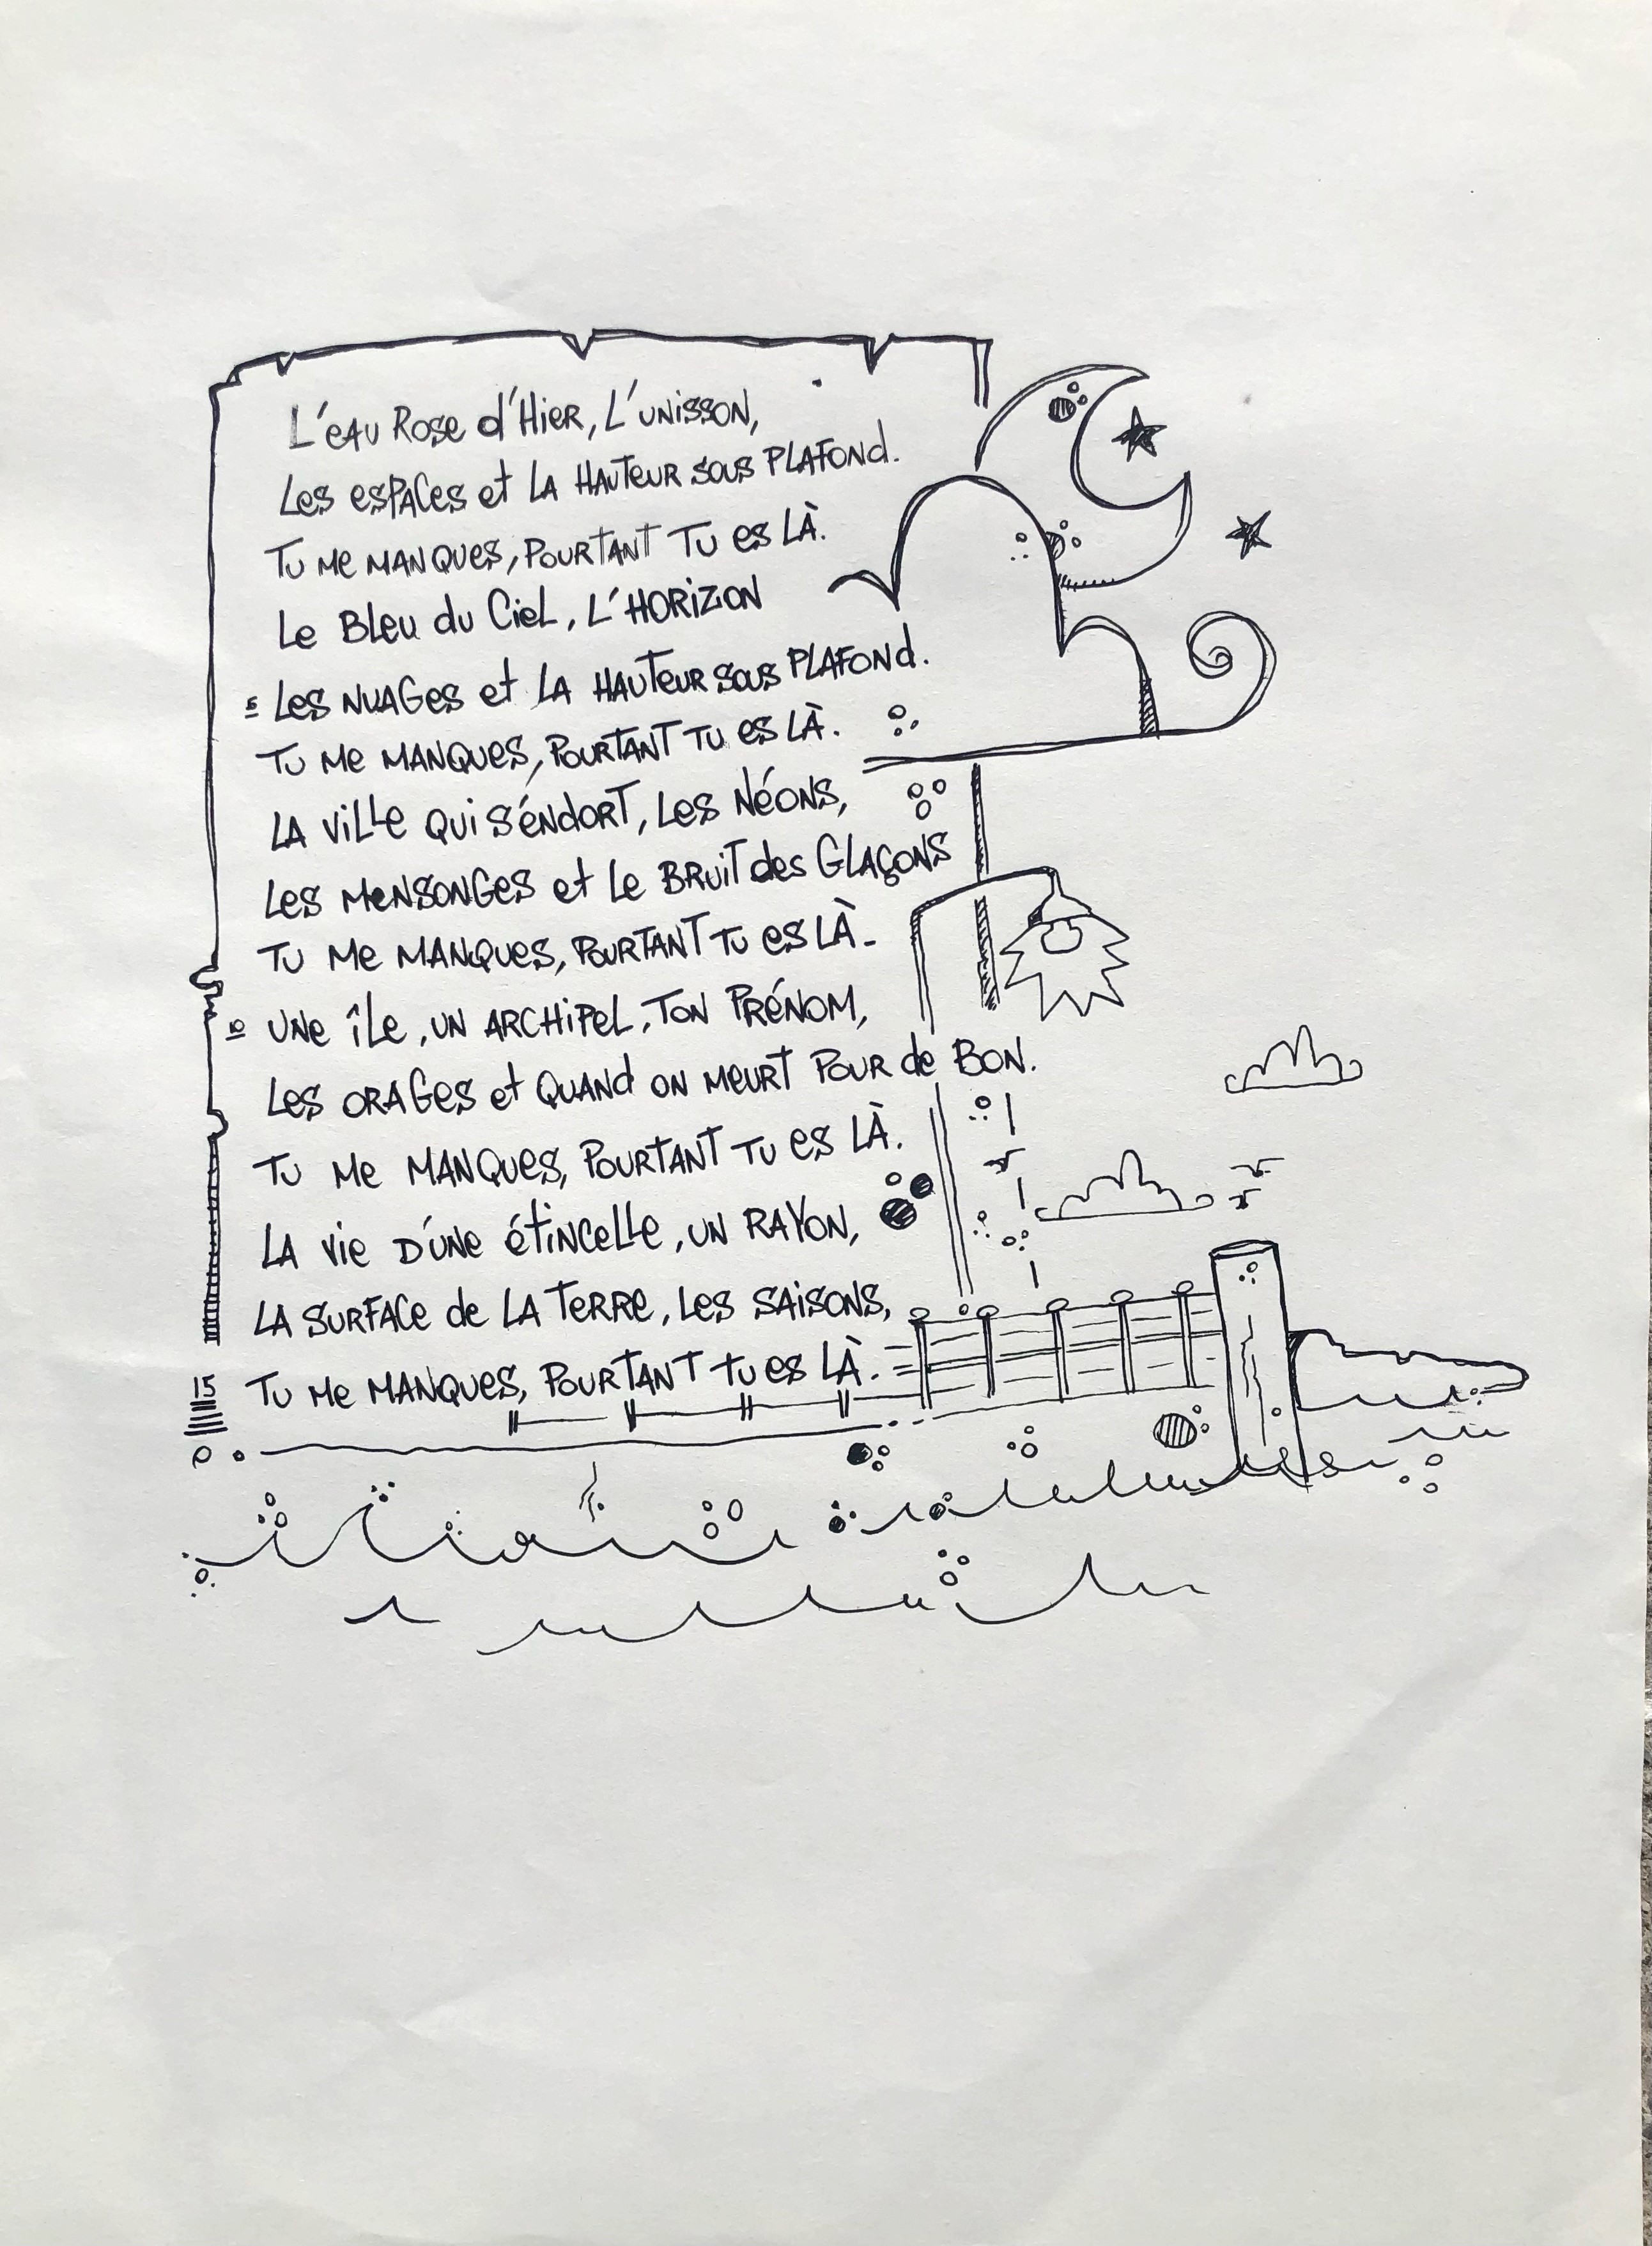 L'eau Rose d'Hier, L'unisson,
Les espaces et la Hauteur sous plafond.
Tu me manques, pourtant tu es là.
Le Bleu du Ciel, L'Horizon
5 Les nuages et la Hauteur sous plafond.
Tu me manques, pourtant tu es là.
La ville qui s'éndort, Les Néons,
Les mensonges et le Bruit des Glaçons
Tu me manques, pourtant tu es là-
10 Une île, un archipel, Ton Prénom,
Les orages et quand on meurt pour de Bon.
Tu me manques, pourtant tu es là.
La vie d'une étincelle, un rayon,
La surface de la Terre, les saisons,
15 Tu me manques, pourtant tu es là.